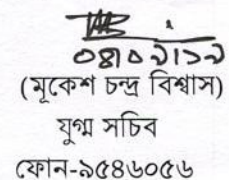 ০৪।০৭।১৯
(মূকেশ চন্দ্র বিশ্বাস)
যুগ্ম সচিব
ফোন-৯৫৪৬০৫৬